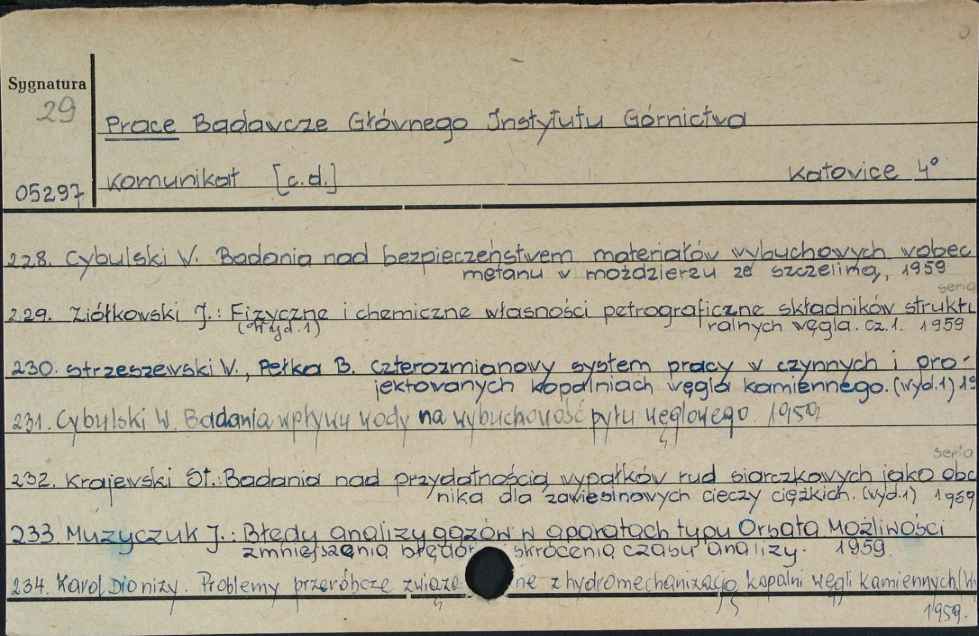 Sygnatura
29
Prace Badawcze Głównego Instytutu Górnictwa
05297 Komunikat [c.d.] Katowice 4°
228. Cybulski W. Badania nad bezpieczeństwem materiałów wybuchowych wobec
metanu w moździerzu ze szczeliną, 1959
seria
229. Ziółkowski J.: Fizyczne i chemiczne własności petrograficzne składników struktu
(wyd.1) ralnych węgla. cz.1. 1959
230. Strzeszewski W., Pełka B. Czterozmianowy system pracy w czynnych i pro-
jektowanych kopalniach węgla kamiennego. (wyd.1) 19
231. Cybulski W. Badania wpływu wody na wybuchowość pyłu węglowego 1959
seria
232. Krajewski St.: Badania nad przydatnością wypałków rud siarczkowych jako obc
nika dla zawiesinowych cieczy ciężkich. (wyd.1) 1959
233. Muzyczuk J.: Błędy analizy gazów w aparatach typu Orsata Możliwości
zmniejszenia błędów skrócenia czasu analizy. 1959.
234. Karol Dionizy. Problemy przeróbcze związa ne z hydromechanizacją kopalni węgli kamiennych (W
1959.